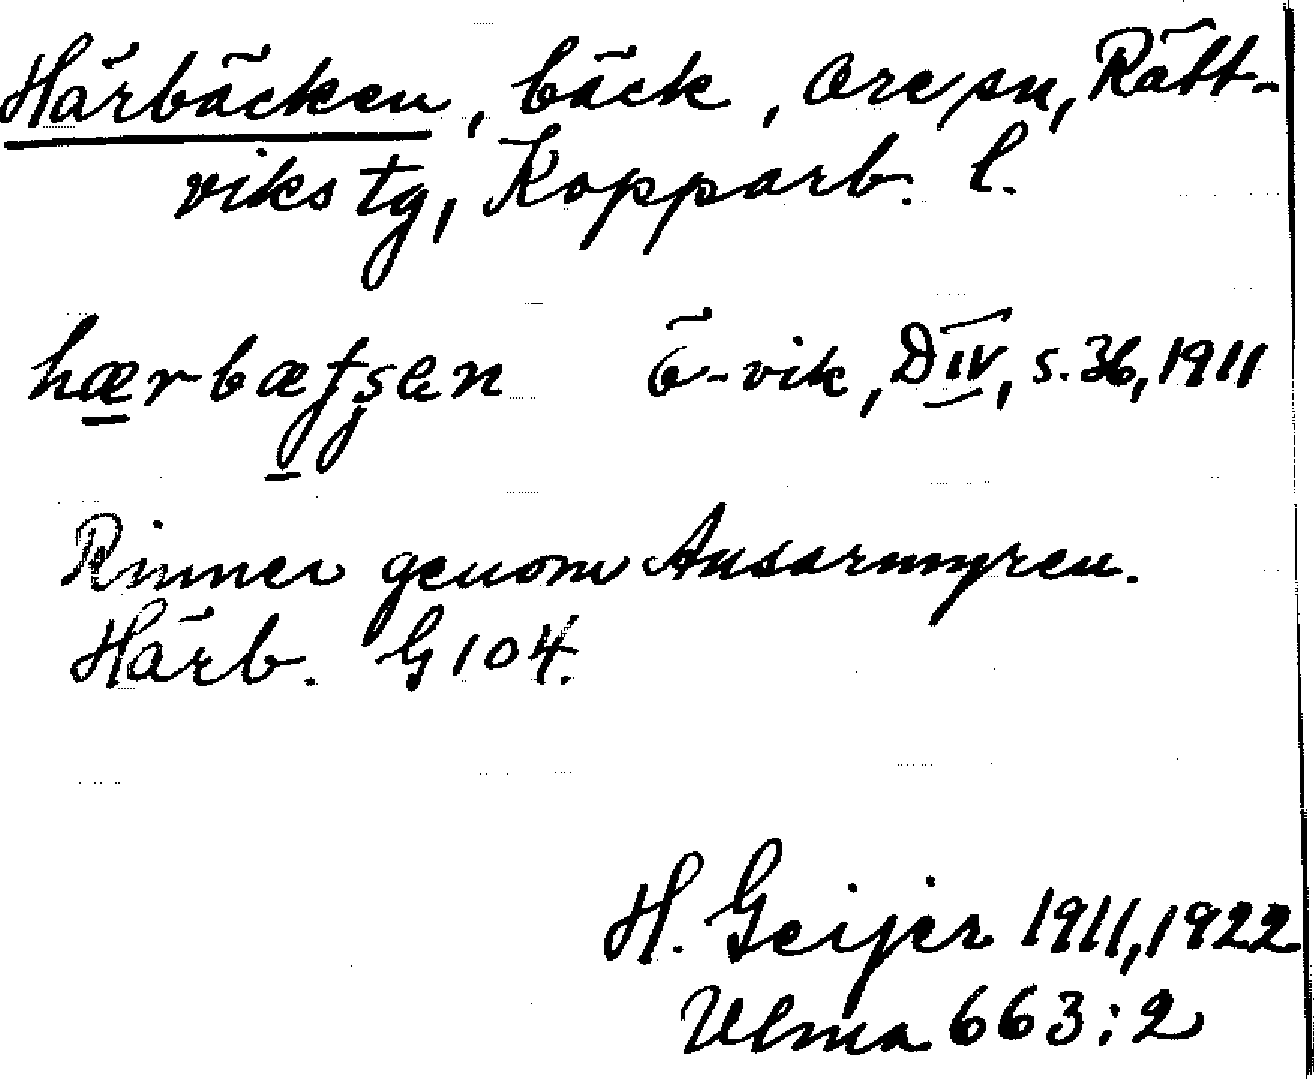 Härbäcken, bäck, Ore sn, Rätt-
viks tg, Kopparb. l.
hærbæʃʂen Ö-vik, D IV, s. 36, 1911
Rinner genom Ansarmyren.
Härb. G 104.
H. Geijer 1911, 1922
Ulma 663:2